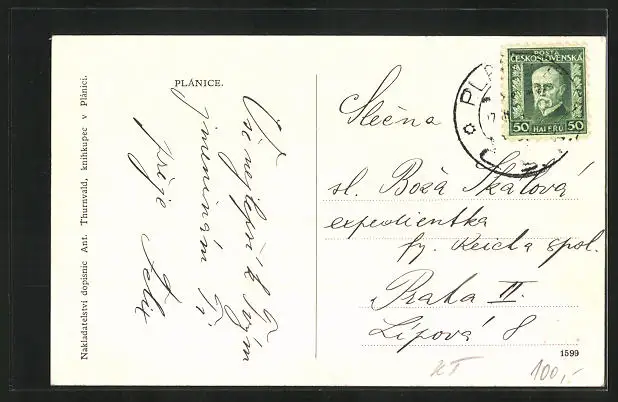 Nakladatelství dopisnic Ant. Thurnvald, knihkupec v Plánici.
PLÁNICE.
Vše nejlepší k Tvým
jmeninám Ti
přeje
POŠTA
ČESKOSLOVENSKÁ
50 HALÉŘŮ 50
PLÁ
Slečna
sl. Boža Skalová
expedientka
fy. Reich a spol.
Praha II.
Lípová 8
1599
KT
100,-